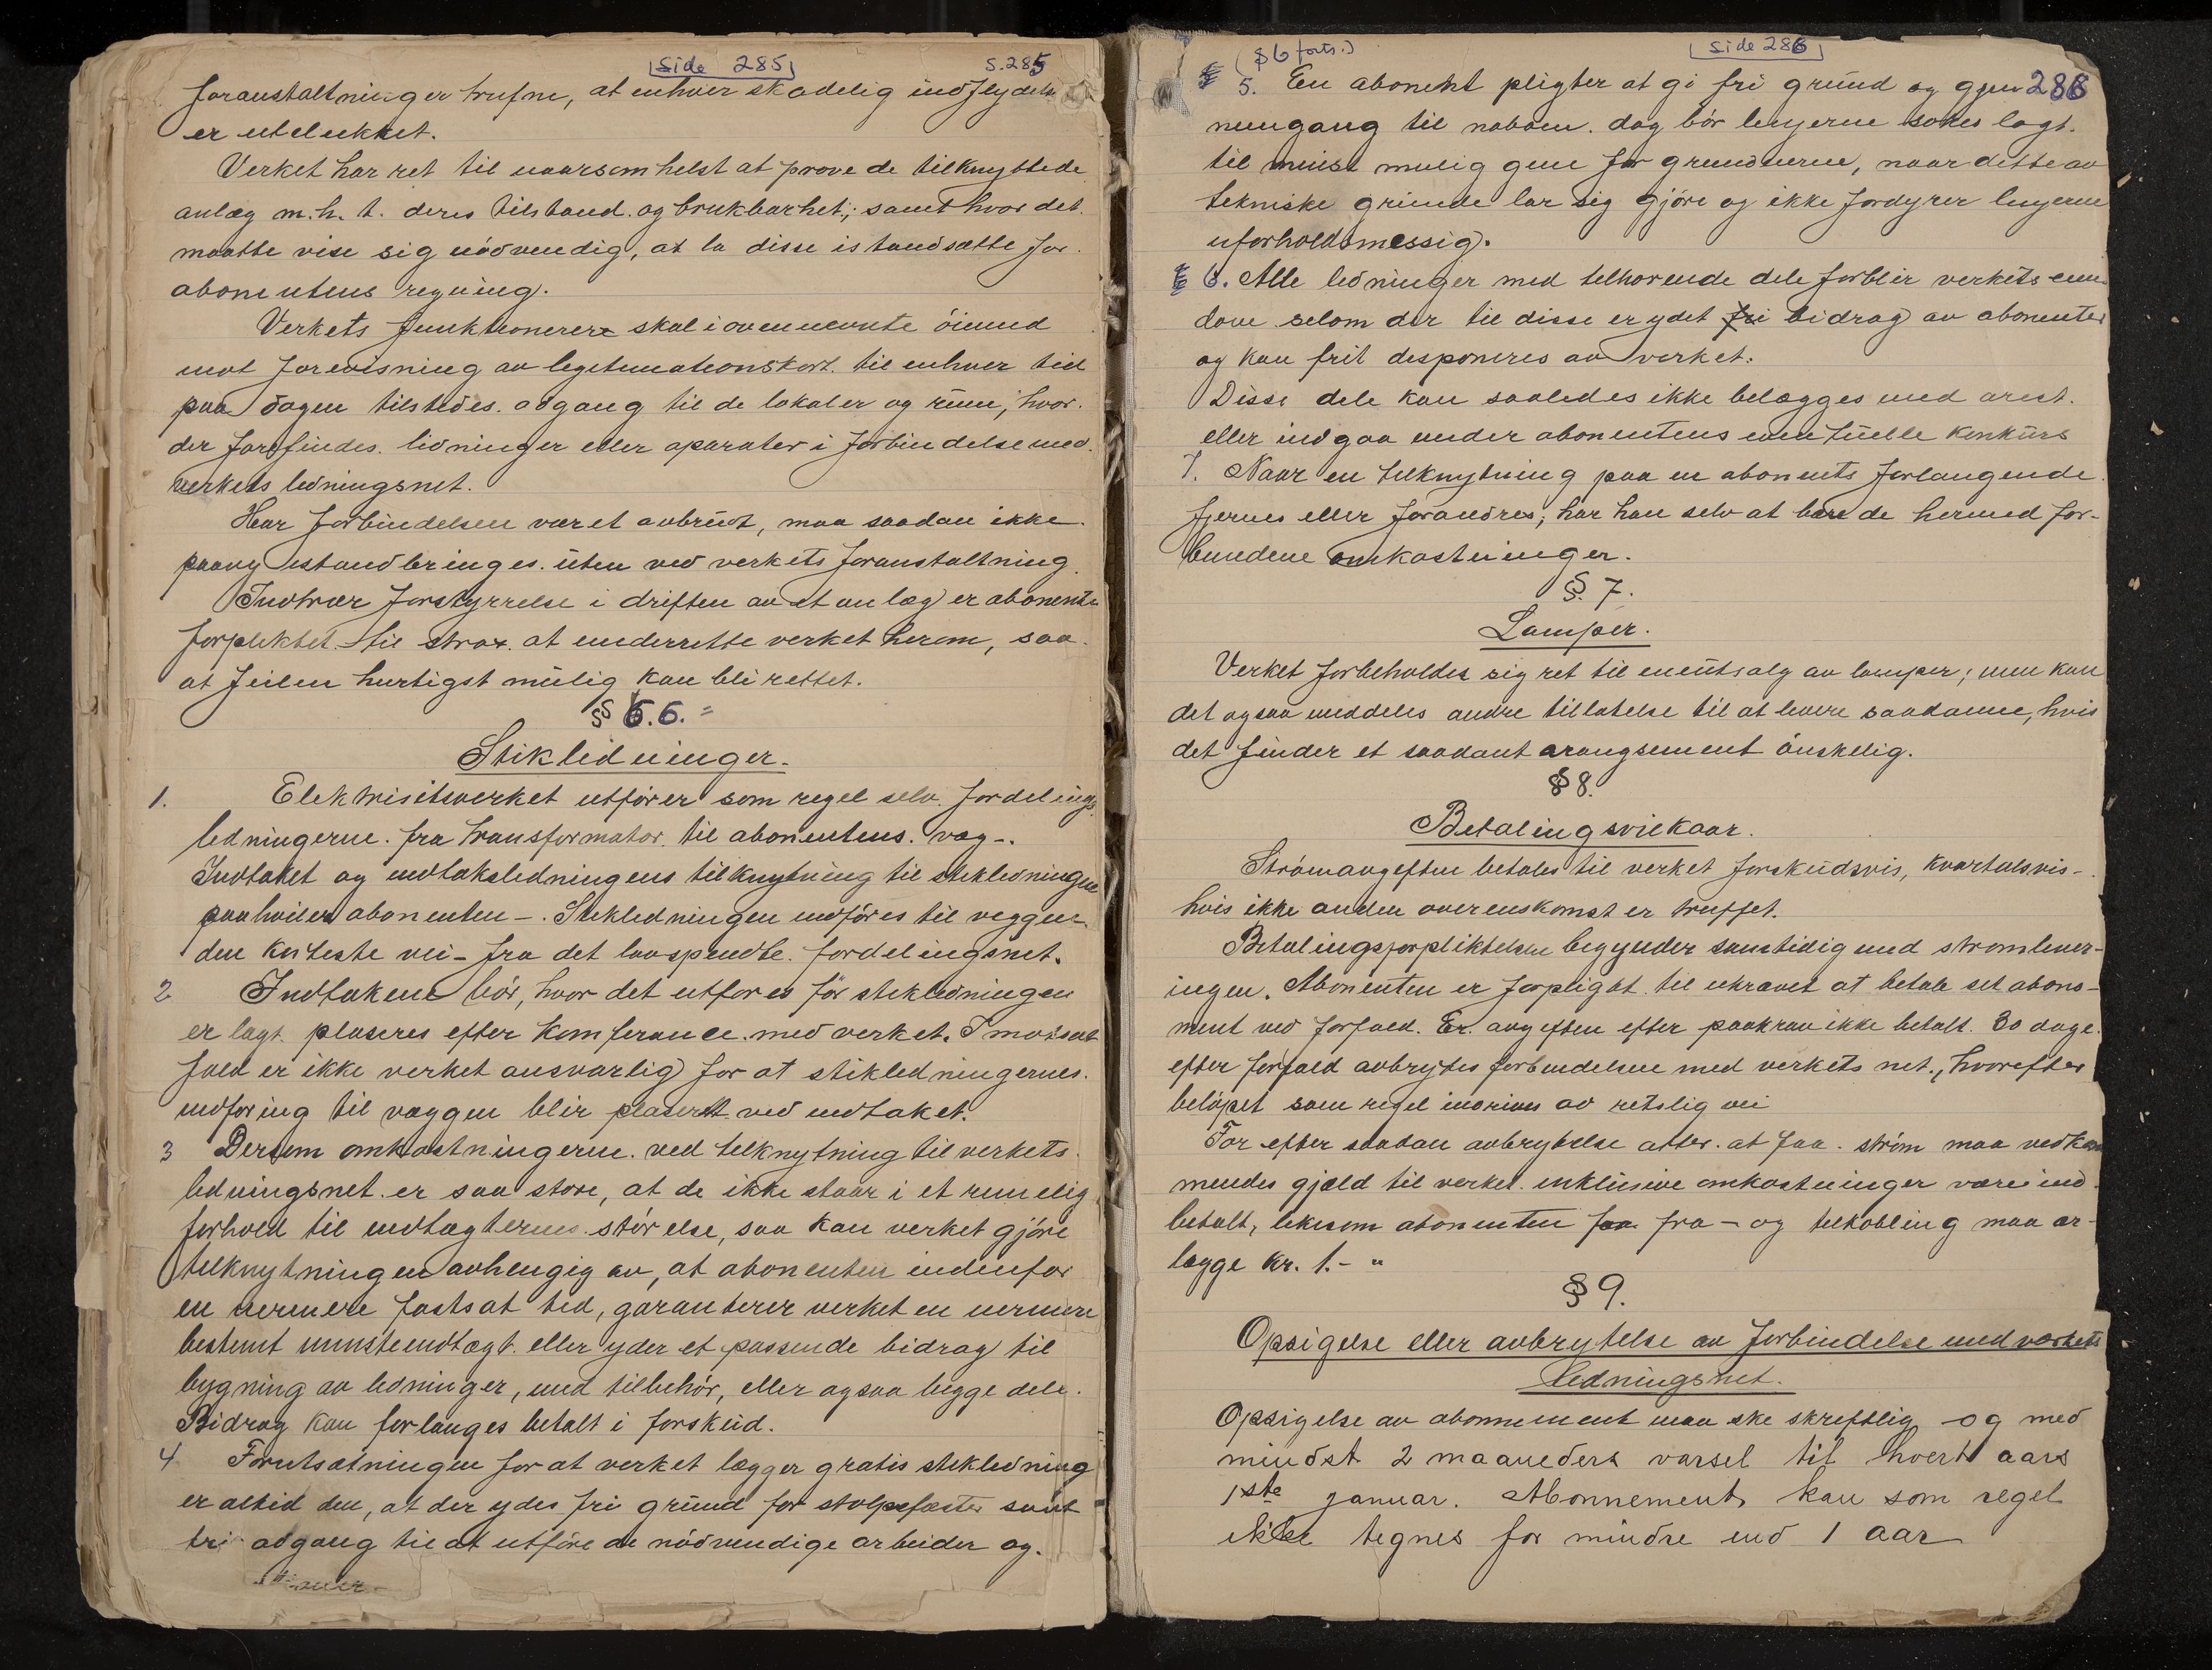 Side 285
S. 285
foranstaltninger trufne, at enhver skadelig indflydelse
er utelukket.
Verket har ret til naarsomhelst at prøve de tilknyttede
anlæg m. h. t. deres tilstand og brukbarhet; samt hvor det
maatte vise sig nödvendig, at la disse istandsætte for
abonnentens regning.
Verkets funktionerere skal i ovennevnte öiemed
mot forevisning av legitimationskort til enhver tid
paa dagen tilstedes adgang til de lokaler og rum, hvor
der forefindes ledninger eller aparater i forbindelse med
verkets ledningsnet.
Har forbindelsen været avbrudt, maa saadan ikke
paany istandbringes uten ved verkets foranstaltning.
Indtrær forstyrrelse i driften av et anlæg er abonenten
forpliktet til strax at underrette verket herom, saa
at feilen hurtigst mulig kan bli rettet.
§ 6. 6. =
Stikledninger.
1. Elektrisitsverket utförer som regel selv fordelings
ledningerne fra transformator til abonentens væg -.
Indtaket og indtaksledningens tilknytning til stikledningen
paahviler abonenten -. Stikledningen indföres til veggen
den korteste vei - fra det lavspendte fordelingsnet.
2 Indtakene bör, hvor det utföres för stikledningen
er lagt plaseres efter komferance med verket. I motsat
fald er ikke verket ansvarlig for at stikledningernes
indföring til væggen blir plasert ved indtaket.
3 Dersom omkostningerne ved tilknytning til verkets
ledningsnet er saa store, at de ikke staar i et rimelig
forhold til indtægternes störelse, saa kan verket gjöre
tilknytningen avhengig av, at abonenten indenfor
en nermere fastsat tid, garanterer verket en nermere
bestemt minsteindtægt eller yder et passende bidrag til
bygning av ledninger, med tilbehör, eller ogsaa begge dele.
Bidrag kan forlanges betalt i forskud.
4 Forutsætningen for at verket lægger gratis stikledning
er altid den, at der ydes fri grund for stolpefæster samt
fri adgang til at utföre de nödvendige arbeider og
(§ 6 forts.)
Side 286
286
5. En abonent pligter at gi fri grund og gjen-
nemgang til naboen. dog bör linjerne sökes lagt
til minst mulig gene for grundeierne, naar dette av
tekniske grunde lar sig gjöre og ikke fordyrer linjerne
uforholdsmessig.
6. Alle ledninger med tilhörende dele forblir verkets eien
dom selom der til disse er ydet fri bidrag av abonenter
og kan frit desponeres av verket.
Disse dele kan saaledes ikke belægges med arest
eller indgaa under abonentens eventuelle konkurs
7. Naar en tilknytning paa en abonents forlangende
fjernes eller forandres, har han selv at bære de hermed for-
bundene omkostninger.
§. 7.
Lamper.
Verket forbeholder sig ret til eneutsalg av lamper; men kan
det ogsaa meddeles andre tillatelse til at levere saadanne, hvis
det finder et saadant arangsement önskelig.
§ 8.
Betalingsvilkaar.
Strömavgiften betales til verket forskudsvis, kvartalsvis -
hvis ikke anden overenskomst er truffet.
Betalingsforpliktelsen begynder samtidig med strömlever-
ingen. Abonenten er forpligtet til ukrævet at betale sit abone-
ment ved forfald. Er avgiften efter paakrav ikke betalt 30 dage
efter forfald avbrytes forbindelsen med verkets net., hvorefter
belöpet som regel indrives av retslig vei
For efter saadan avbrytelse atter at faa ström maa vedkom
mendes gjæld til verket inklusive omkostninger være ind
betalt, likesom abonenten for fra - og tilkobling maa er-
lægge kr. 1. - "
§ 9.
Opsigelse eller avbrytelse av forbindelse med verkets
ledningsnet.
Opsigelse av abonnement maa ske skriftlig og med
mindst 2 maaneders varsel til hvert aars
1ste januar. Abonnement kan som regel
ikke tegnes for mindre end 1 aar